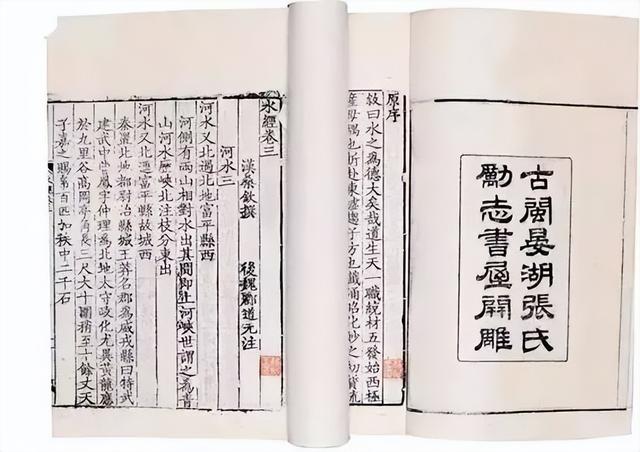 古閩晏湖張氏
勵志書屋開雕
原序
敘曰水之為德大矣哉道生天一職統材五發始西極
水經卷三
漢桑欽撰 後魏酈道元注
河水三
河水又北過北地富平縣西
河側有兩山相對水出其間即上河峽世謂之為青
山河水歷峽北注枝分東出
河水又北逕富平縣故城西
秦置北地都尉治縣城王莽名郡為威戎縣曰特武
建武中曹鳳字仲理為北地太守政化尤異黃龍應
於九里谷高岡亭角長三尺大十圍稍至十餘丈天
子嘉之賜帛百匹加秩中二千石